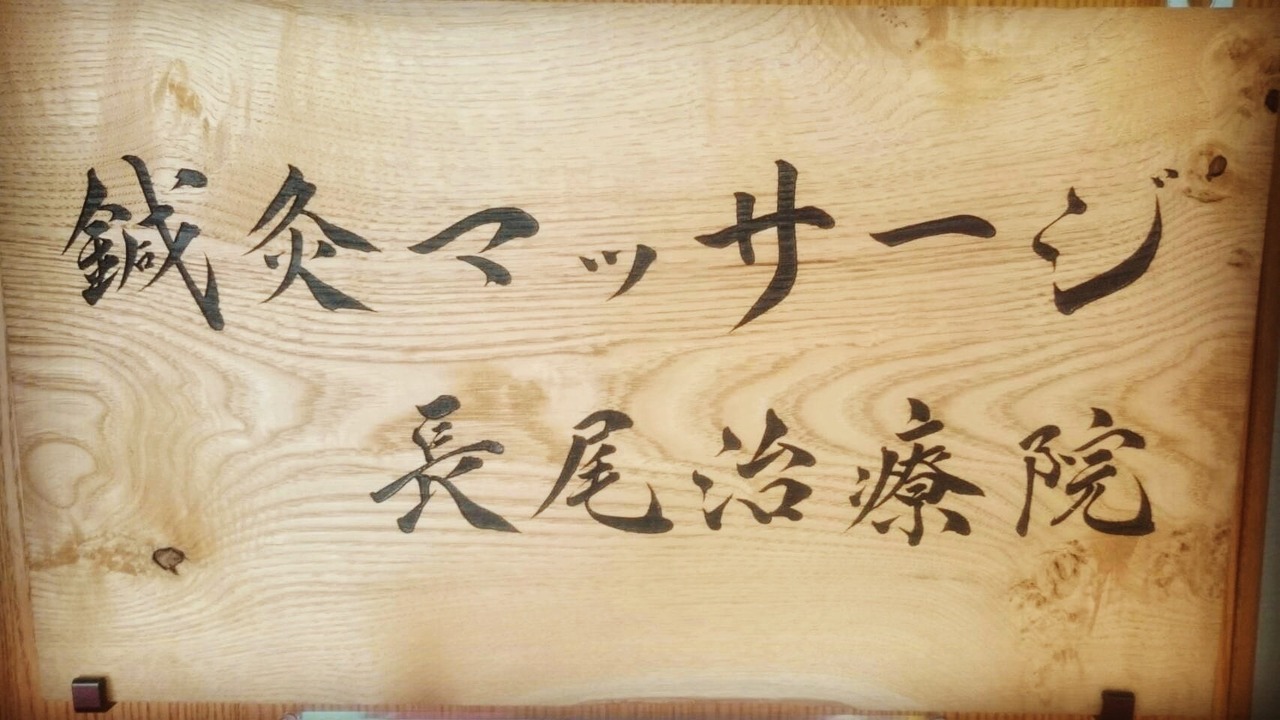 鍼灸マッサージ
長尾治療院